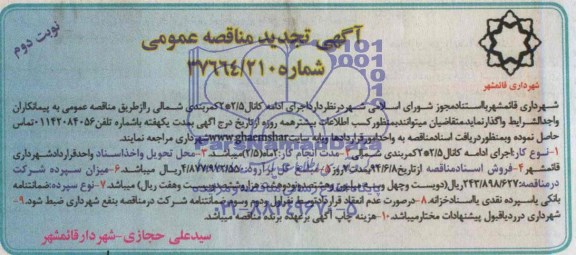 آگهی تجدید مناقصه عمومی
شماره ۳۷۶۶۴/۲۱۰
نوبت دوم
شهرداری قائمشهر
شهرداری قائمشهر بااستنادمجوز شورای اسلامی شهر درنظردارداجرای ادامه کانال۲/۵*۲کمربندی شمالی راازطریق مناقصه عمومی به پیمانکاران
واجدالشرایط واگذارنماید.متقاضیان میتوانندبمنظورکسب اطلاعات بیشترهمه روزه ازتاریخ درج آگهی بمدت یکهفته باشماره تلفن۰۱۱۴۲۰۸۴۰۵۶تماس
حاصل نموده وبمنظوردریافت اسنادمناقصه به واحدامورقراردادها وپایه سایتwww.ghaemshar شهرداری مراجعه نمایند.
۱-نوع کار:اجرای ادامه کانال۲/۵*۲کمربندی شمالی ۲-مدت انجام کار:۲ماه(۲/۵)میباشد. ۳-محل تحویل واخذاسناد واحدقراردادشهرداری
قائمشهر ۴-فروش اسنادمناقصه ازتاریخ۹۴/۶/۸بمدت۷روز ۵-مبلغ کل برآورد:۴/۸۷۷/۹۷۲/۵۵۰ریال میباشد. ۶-میزان سپرده شرکت
درمناقصه:۲۴۳/۸۹۸/۶۲۷ریال(دویست وچهل وسه میلیون وهشتصدونودوهشت هزاروششصدوبیست وهفت ریال) میباشد. ۷-نوع سپرده:ضمانتنامه
بانکی یاسپرده نقدی یااسنادخزانه. ۸-درصورت عدم انعقاد قراردادتوسط نفراول ودوم وسوم ضمانتنامه شرکت در مناقصه بنفع شهرداری ضبط شود. ۹-
شهرداری درردیاقبول پیشنهادات مختارمیباشد. ۱۰-هزینه چاپ آگهی برعهده برنده مناقصه میباشد.
سیدعلی حجازی-شهردارقائمشهر